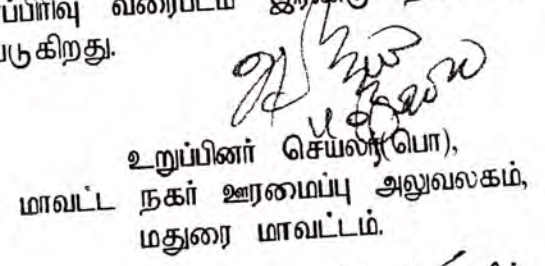 வரைபடம்
படுகிறது.
உறுப்பினர் செயலர்(பொ),
மாவட்ட நகர் ஊரமைப்பு அலுவலகம்,
மதுரை மாவட்டம்.